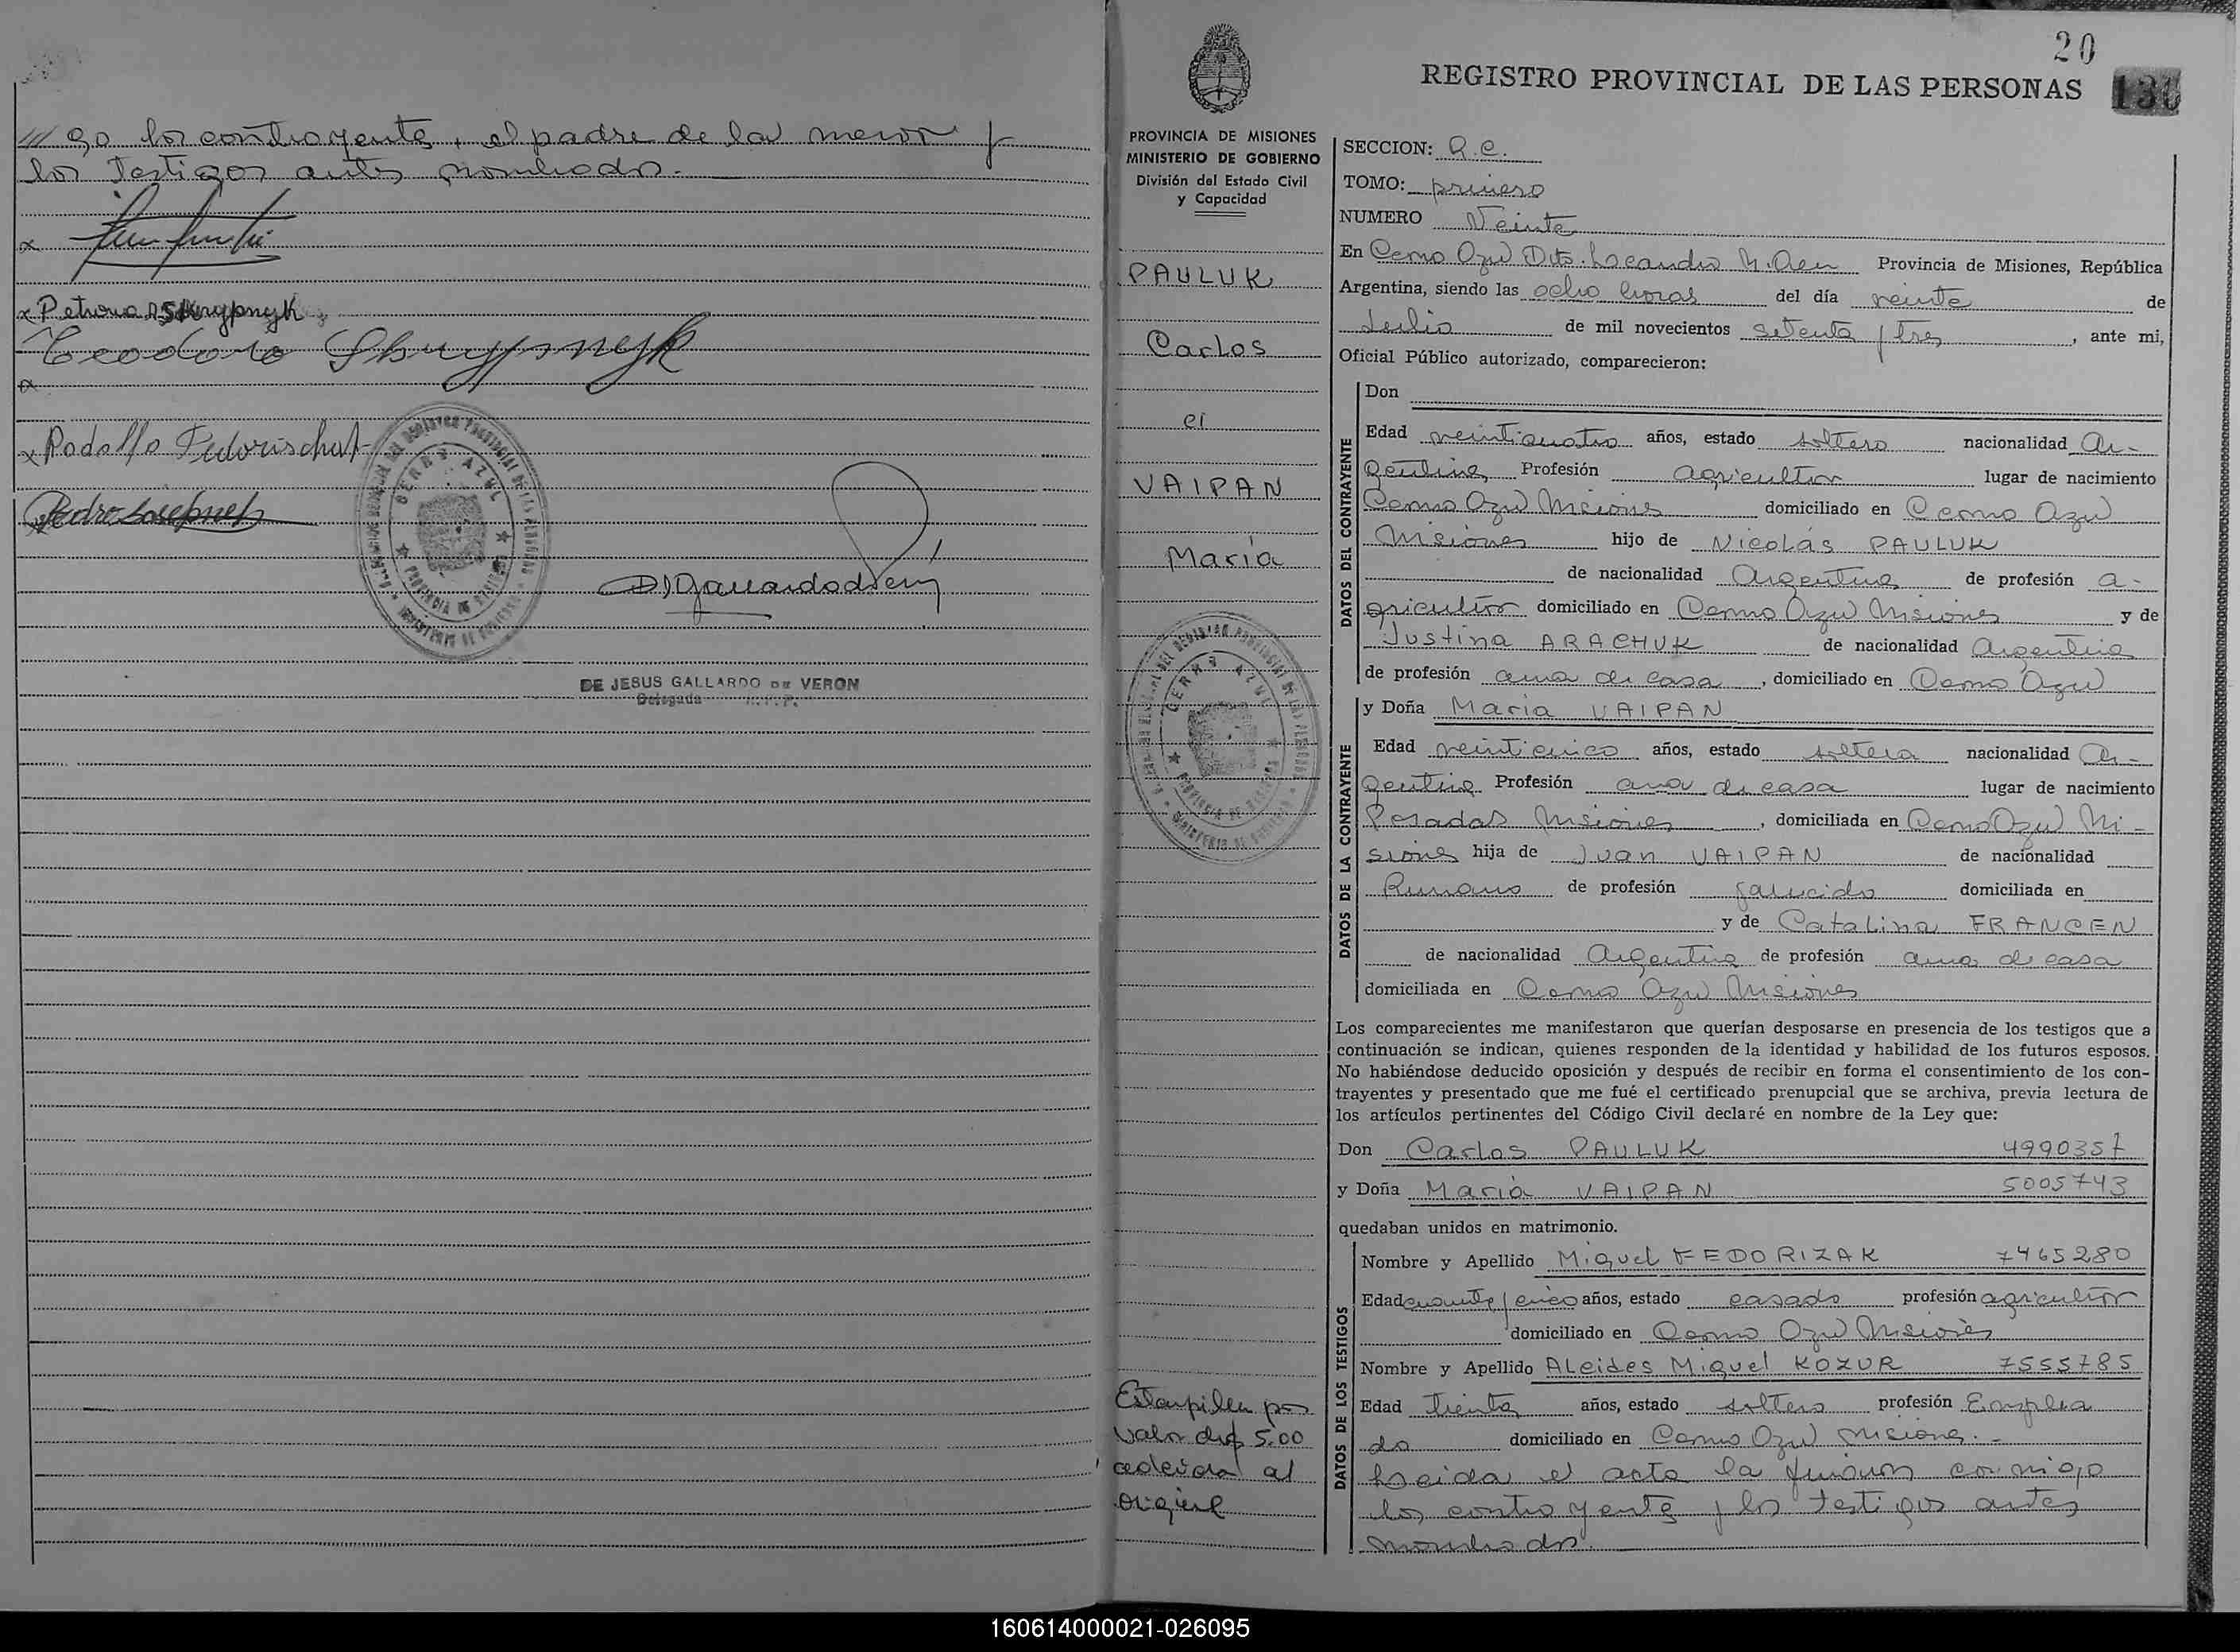 /// go los contrayentes, el padre de la menor y
los Testigos antes nombrados.-
x
x Petrona Skrypnyk
Teodoro Skrypnyk
x
x Rodolfo Fedorischak
Pedro
CERRO AZUL
PROVINCIA DE MISIONES
DE JESUS GALLARDO DE VERON
Delegada R.P.P.
PROVINCIA DE MISIONES
MINISTERIO DE GOBIERNO
División del Estado Civil
y Capacidad
PAULUK
Carlos
c/
VAIPAN
María
CERRO AZUL
Estampilla por
valor de $ 5.00
adherida al
original
20
REGISTRO PROVINCIAL DE LAS PERSONAS
130
SECCION: R.C.
TOMO: primero
NUMERO Veinte
En Cerro Azul Dto. Leandro N. Alem Provincia de Misiones, República
Argentina, siendo las ocho horas del día veinte de
Julio de mil novecientos setenta y tres, ante mi,
Oficial Público autorizado, comparecieron:
DATOS DEL CONTRAYENTE
Don
Edad veinticuatro años, estado soltero nacionalidad Ar-
gentina Profesión agricultor lugar de nacimiento
Cerro Azul Misiones domiciliado en Cerro Azul
Misiones hijo de Nicolás PAULUK
de nacionalidad Argentina de profesión a-
gricultor domiciliado en Cerro Azul Misiones y de
Justina ARACHUK de nacionalidad Argentina
de profesión ama de casa, domiciliado en Cerro Azul
DATOS DE LA CONTRAYENTE
y Doña María VAIPAN
Edad veinticinco años, estado soltera nacionalidad Ar-
gentina Profesión ama de casa lugar de nacimiento
Posadas Misiones, domiciliada en Cerro Azul Mi-
siones hija de Juan VAIPAN de nacionalidad
Rumano de profesión falucido domiciliada en
y de Catalina FRANCEN
de nacionalidad Argentina de profesión ama de casa
domiciliada en Cerro Azul Misiones
Los comparecientes me manifestaron que querían desposarse en presencia de los testigos que a
continuación se indican, quienes responden de la identidad y habilidad de los futuros esposos.
No habiéndose deducido oposición y después de recibir en forma el consentimiento de los con-
trayentes y presentado que me fué el certificado prenupcial que se archiva, previa lectura de
los artículos pertinentes del Código Civil declaré en nombre de la Ley que:
Don Carlos PAULUK 4990357
y Doña María VAIPAN 5005743
quedaban unidos en matrimonio.
DATOS DE LOS TESTIGOS
Nombre y Apellido Miguel FEDORIZAK 7465280
Edad cuarenta y cinco años, estado casado profesión agricultor
domiciliado en Cerro Azul Misiones
Nombre y Apellido Alcides Miguel KOZUR 7555785
Edad treinta años, estado soltero profesión Emplea
do domiciliado en Cerro Azul Misiones.-
Leida el acta la firmaron conmigo
los contrayentes y los testigos antes
nombrados.
160614000021-026095